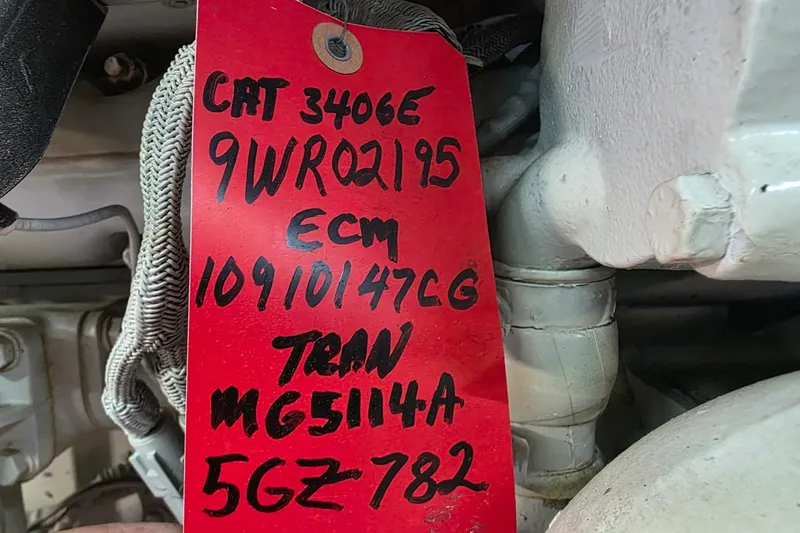 CAT 3406E
9WR02195
ECM
10910147CG
TRAN
MG5114A
5GZ782